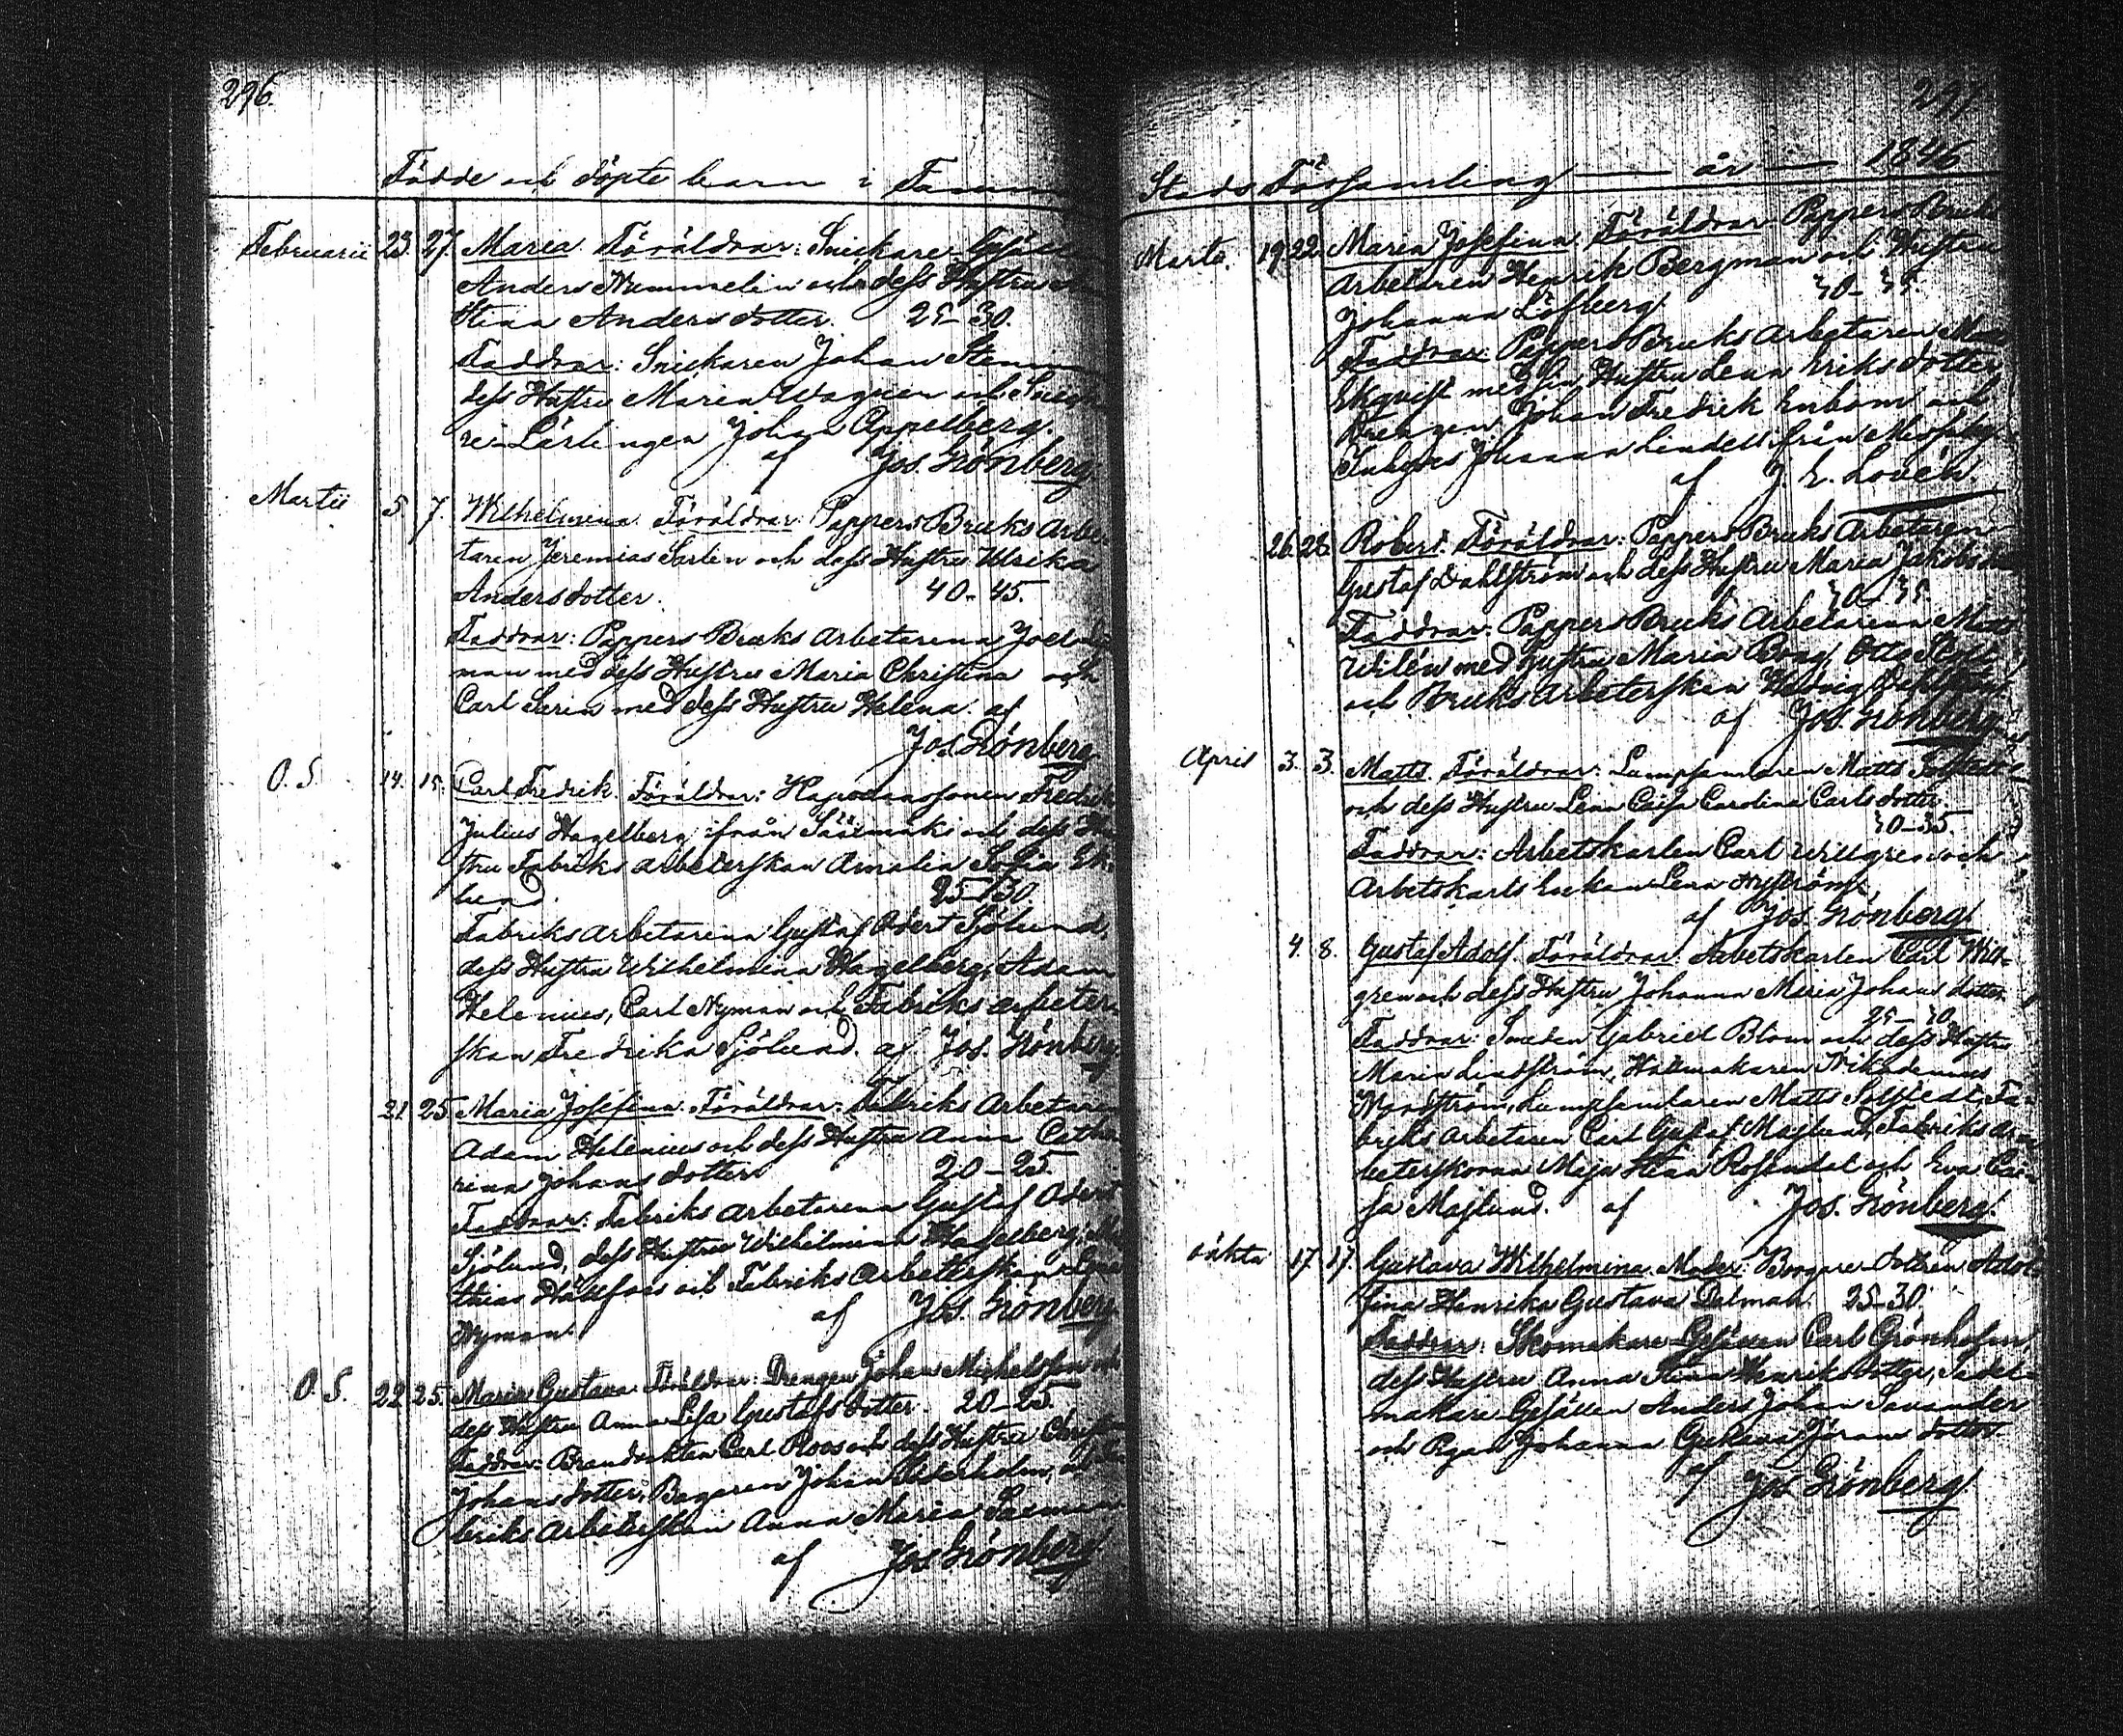 296.
Födde och döpte barn i
Februarii 23. 27. Maria. Föräldrar: Snickare
Anders Nummelin och dess Hustru
Stina Anders dotter. 25-30.
Faddrar: Snickaren Johan
dess Hustru Maria Wagner och
re-Lärlingen Johan Appelberg.
af Jos. Grönberg.
Martii 5. 7. Wilhelmina. Föräldrar: Pappers Bruks Arbe
taren Jeremias Sarlin och dess Hustru Ulrika
Anders dotter. 40-45.
Faddrar: Pappers Bruks Arbetarena Joel
man med dess Hustru Maria Christina och
Carl Serin med dess Hustru Helena. af
Jos. Grönberg
O. S. 14. 15. Carl Fredrik. Föräldrar: Fredrik
Julius Hagelberg ifrån Sääxmäki och dess
stru Fabriks arbeterskan Amalia Sofia Ek-
lund. 25-30.
Fabriks arbetarena Gustaf Odert Sjölund,
dess Hustru Wilhelmina Hagelberg, Adam
Helenius, Carl Nyman och Fabriks arbeter-
skan Fredrika Sjölund. af Jos. Grönberg
21. 25. Maria Josefina. Föräldrar: Fabriks Arbetaren
Adam Helenius och dess Hustru Anna Catha
rina Johans dotter 20-25.
Faddrar: Fabriks arbetarena Gustaf Odert
Sjölund, dess Hustru Wilhelmina Hagelberg,
thias och Fabriks arbeterskan Lena
Nyman. af Jos. Grönberg.
O. S. 22. 25. Maria Gustava. Föräldrar: Drengen Johan Michelsson och
dess Hustru Anna Lisa Gustafs dotter. 20-25.
Faddrar: Brandvakten Carl Roos och dess Hustru
Johans dotter, Bagaren Johan Cederholm,
briks arbeterskan Anna Maria
af Jos. Grönberg
297
Stads Församling — år — 1846
Martii. 19. 22. Maria Josefina. Föräldrar: Pappers Bruks
Arbetaren Henrik Bergman och Hustru
Johanna Löfberg. 30-35.
Faddrar: Pappers Bruks Arbetaren
Ekqvist med sin Hustru Lena Eriks dotter
Drengen Johan Fredrik Enbom och
Johanna Lindell från
af J. E. Lovén.
26. 28. Robert. Föräldrar: Pappers Bruks Arbetaren
Gustaf Dahlström och dess Hustru Maria Jakobs
30-35.
Faddrar: Pappers Bruks Arbetarena Matts
Wilén med Hustru Maria Otto
och Bruks Arbeterskan Hedvig Dahlström
af Jos. Grönberg
April 3. 3. Matts. Föräldrar: Lumpsamlaren Matts
och dess Hustru Lena Caisa Carolina Carls dotter.
30-35.
Faddrar: Arbetskarlen Carl Willgren och
Arbetskarls Enkan Lena Nyström,
af Jos. Grönberg
4. 8. Gustaf Adolf. Föräldrar: Arbetskarlen Carl Will-
gren och dess Hustru Johanna Maria Johans dotter
25-30.
Faddrar: Smeden Gabriel Blom och dess Hustru
Maria Lindström, Hattmakaren Nikodemus
Nordström, Lumpsamlaren Matts Fa-
briks Arbetaren Carl Gustaf Maslund, Fabriks ar-
beterskorna Maja Stina Rosendal och Eva Cai-
sa Maslund. af Jos. Grönberg.
oäkta 17. 17. Gustava Wilhelmina. Moder: Borgare Dottren Adol-
fina Henrika Gustava Dalman. 25-30.
Faddrar: Skomakare-Gesällen Carl Grönholm,
dess Hustru Anna Stina Henriks dotter, Sadel-
makare-Gesällen Anders Johan Savander
och Pigan Johanna Gustava Jörans dotter
af Jos. Grönberg